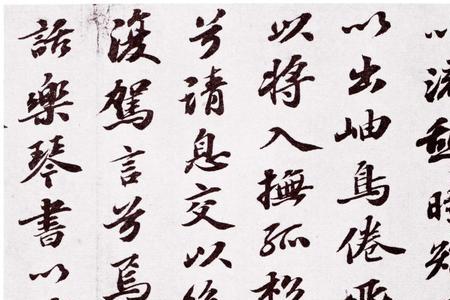 以流憩時
以出岫鳥倦飛
以將入撫孤松
兮請息交以絶
復駕言兮焉
話樂琴書以